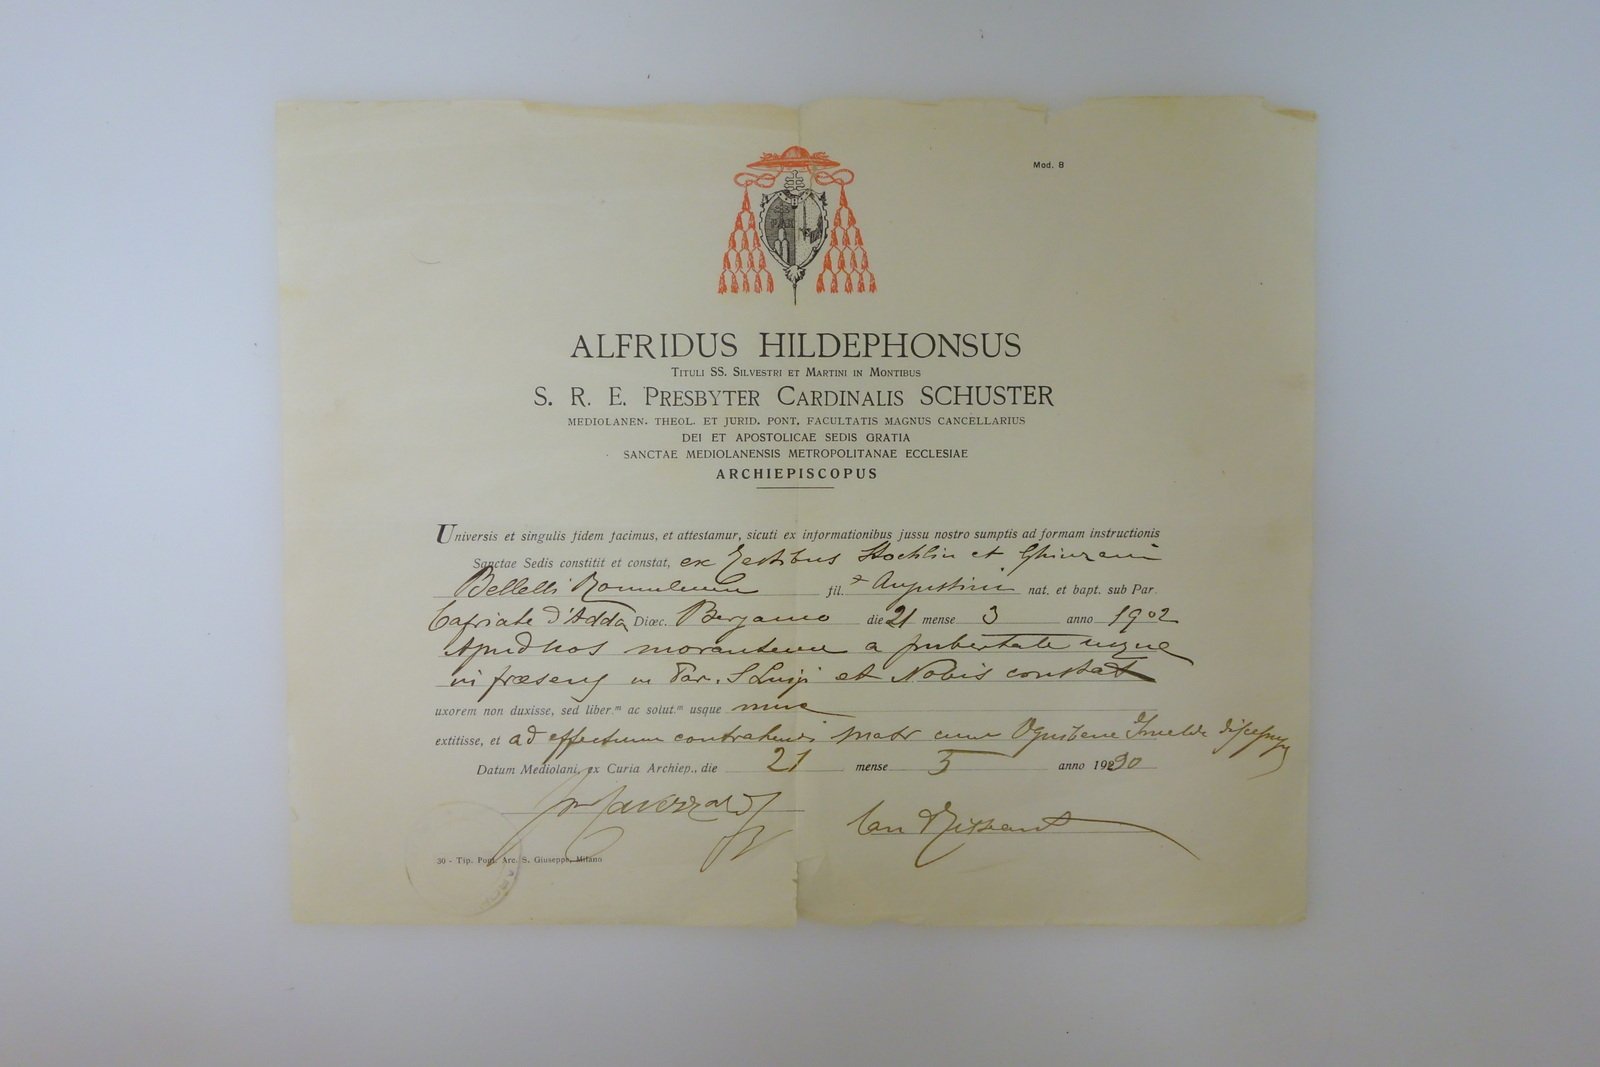 Mod. B
ALFRIDUS HILDEPHONSUS
TITULI SS. SILVESTRI ET MARTINI IN MONTIBUS
S. R. E. PRESBYTER CARDINALIS SCHUSTER
MEDIOLANEN. THEOL. ET JURID. PONT. FACULTATIS MAGNUS CANCELLARIUS
DEI ET APOSTOLICAE SEDIS GRATIA
SANCTAE MEDIOLANENSIS METROPOLITANAE ECCLESIAE
ARCHIEPISCOPUS
Universis et singulis fidem facimus, et attestamur, sicuti ex informationibus jussu nostro sumptis ad formam instructionis
Sanctae Sedis constitit et constat, ex Testibus et
Bellelli Romulum fil. Augustini nat. et bapt. sub Par.
Capriate d'Adda Diœc. Bergamo die 21 mense 3 anno 1902
Apud Nos morantem a pubertate usque
in præsens in Par. S Luigi et Nobis constat
uxorem non duxisse, sed liber.m ac solut.m usque nunc
extitisse, et ad effectum contrahendi matr cum
Datum Mediolani, ex Curia Archiep., die 21 mense 5 anno 1930
30 - Tip. Pont. Arc. S. Giuseppe, Milano